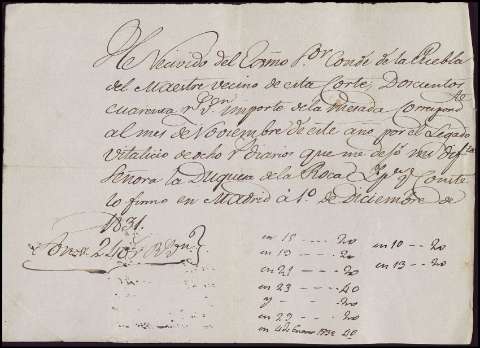 He Recivido del Exmo Sor Conde de la Puebla
del Maestre vecino de esta Corte, Doscientos
cuarenta rs vn importe de la Mesada correspte
al mes de Noviembre de este ano por el Legado
Vitalicio de ocho rs diarios que me dejó mi
Señora la Duquesa de la Roca y pa qe Conste
lo firmo en Madrid à 1o de Diciembre de
1831.
Son 240 rs Vn
en 15 --- 20
en 10 -- 20
en 19 --- 20
en 13 -- 20
en 21 --- 20
en 23 --- 40
y --- 20
en 29 --- 20
en 4 de Enero 1832 40